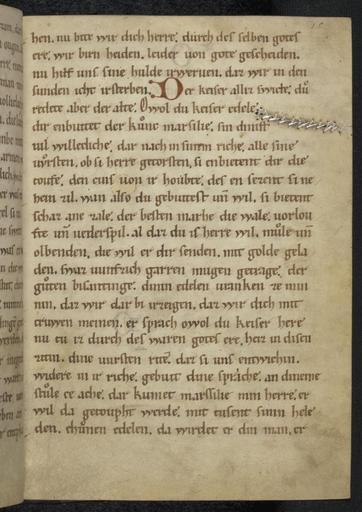 hen. nu bite wir dich herre. durch des selben gotes
ere. wir birn heiden. leider uon gote gescheiden.
nu hilf uns sine hulde irweruen. daz wir in den
sunden icht irsterben. Der keiser allez swicte. du
redete aber der alte. Owol du keiser edele.
dir enbiutet der kůnc marsilie. sin dinist
uil willecliche. daz nach in sinim riche. alle sine
uůrsten. ob si herre getorsten. si enbietent dir die
toufe. den cins uon ir houbte. des en
wil. wan also du gebiutest uñ wil. si bietent
schaz ane zale. der besten marhe die wale.
uñ uederspil. al daz du is herre wil. můle uñ
olbenden. die wil er dir senden. mit golde gela
den. swaz uunfzich garren mugen getrage. der
gůten bisantinge. dinin edelen uianken ze min
nin. daz wir dar bi irzeigen. daz wir dich mit
truwen meinen. er sprach owol du keiser here
nu tu iz durch des waren gotes ere. her in disen
ritin. dine uursten ritē. daz si uns entwichin.
widere in ir riche. gebiut dine sprâche. an dineme
stůle ce ache. dar kumet marssilie min herre. er
wil da getoupht werde. mit tusent sinin hele
den. chůnen edelen. da wirdet er din man. er